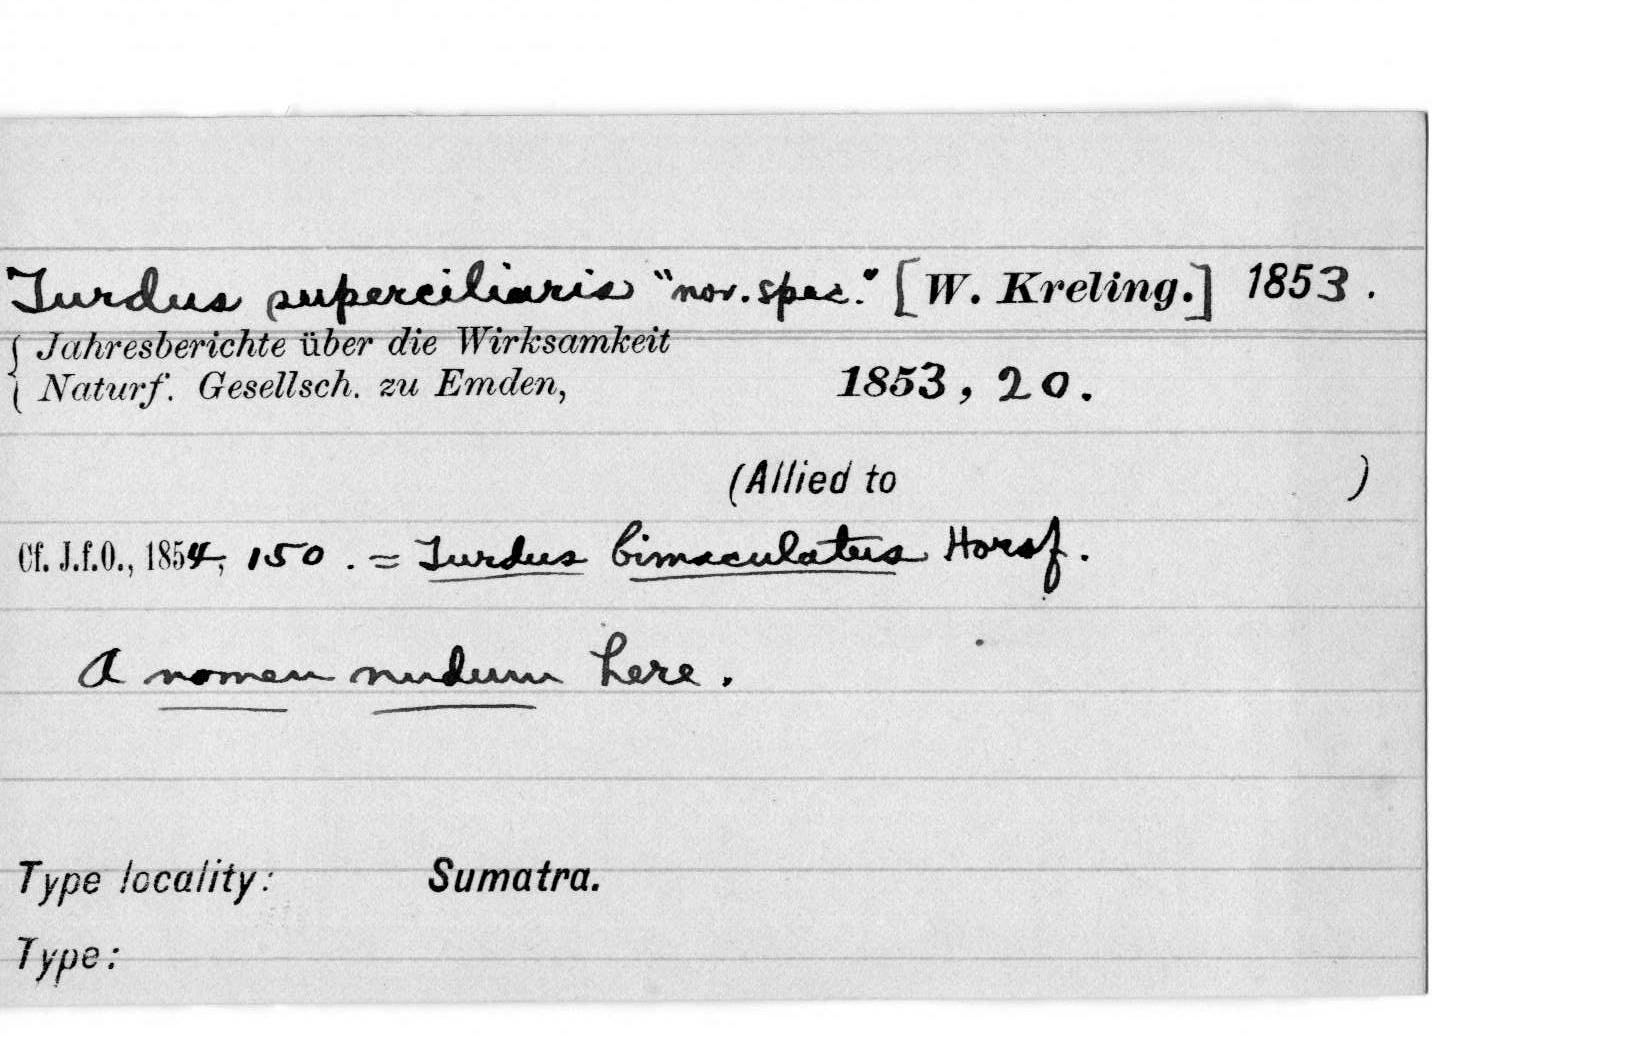 Turdus superciliaris "nov. spec." [W. Kreling.] 1853.
{ Jahresberichte über die Wirksamkeit
{ Naturf. Gesellsch. zu Emden, 1853, 20.
(Allied to )
Cf. J.f.O., 1854, 150. = Turdus bimaculatus Horsf.
A nomen nudum here.
Type locality: Sumatra.
Type: